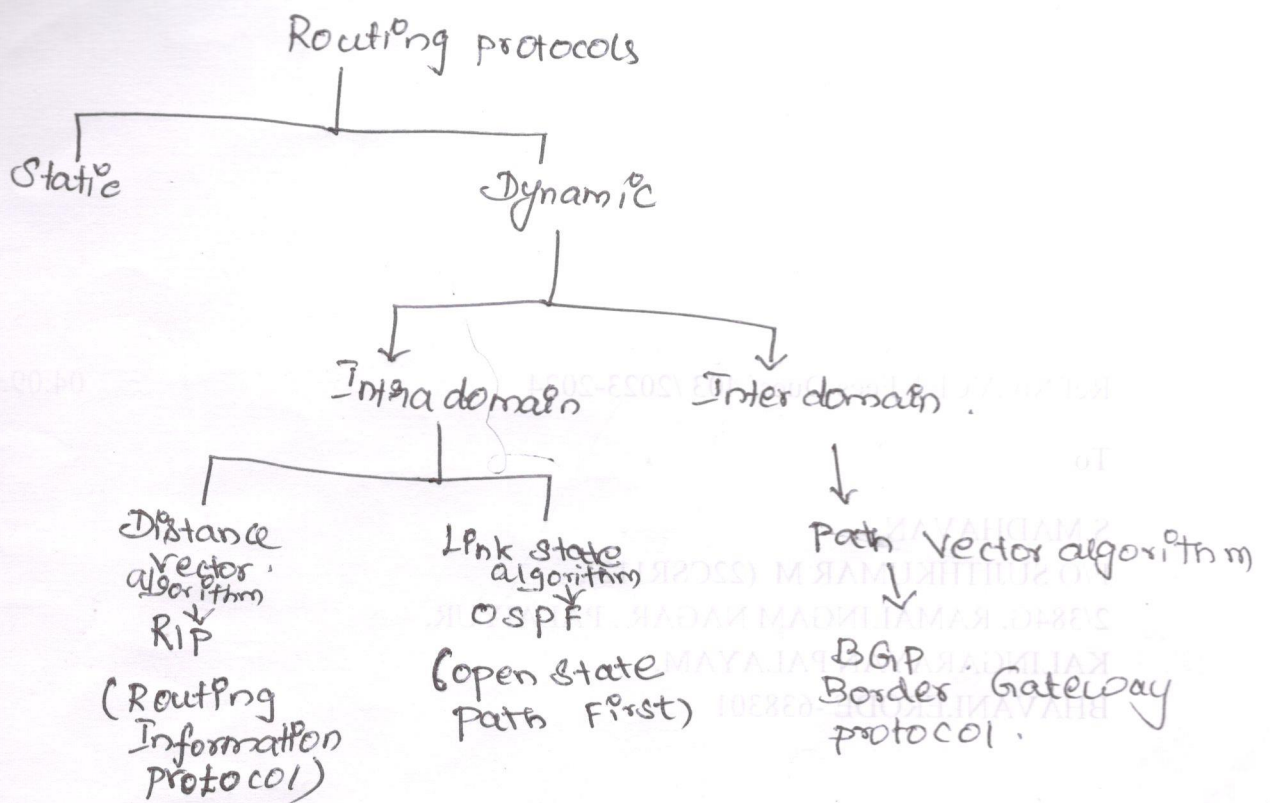 Routing protocols
Static
Dynamic
Intra domain
Inter domain.
Distance
vector
algorithm
RIP
(Routing
Information
protocol)
Link state
algorithm
OSPF
(open state
path First)
Path Vector algorithm
BGP
Border Gateway
protocol.
To
KALINGARAYANPALAYAM
BHAVANI, ERODE-638301